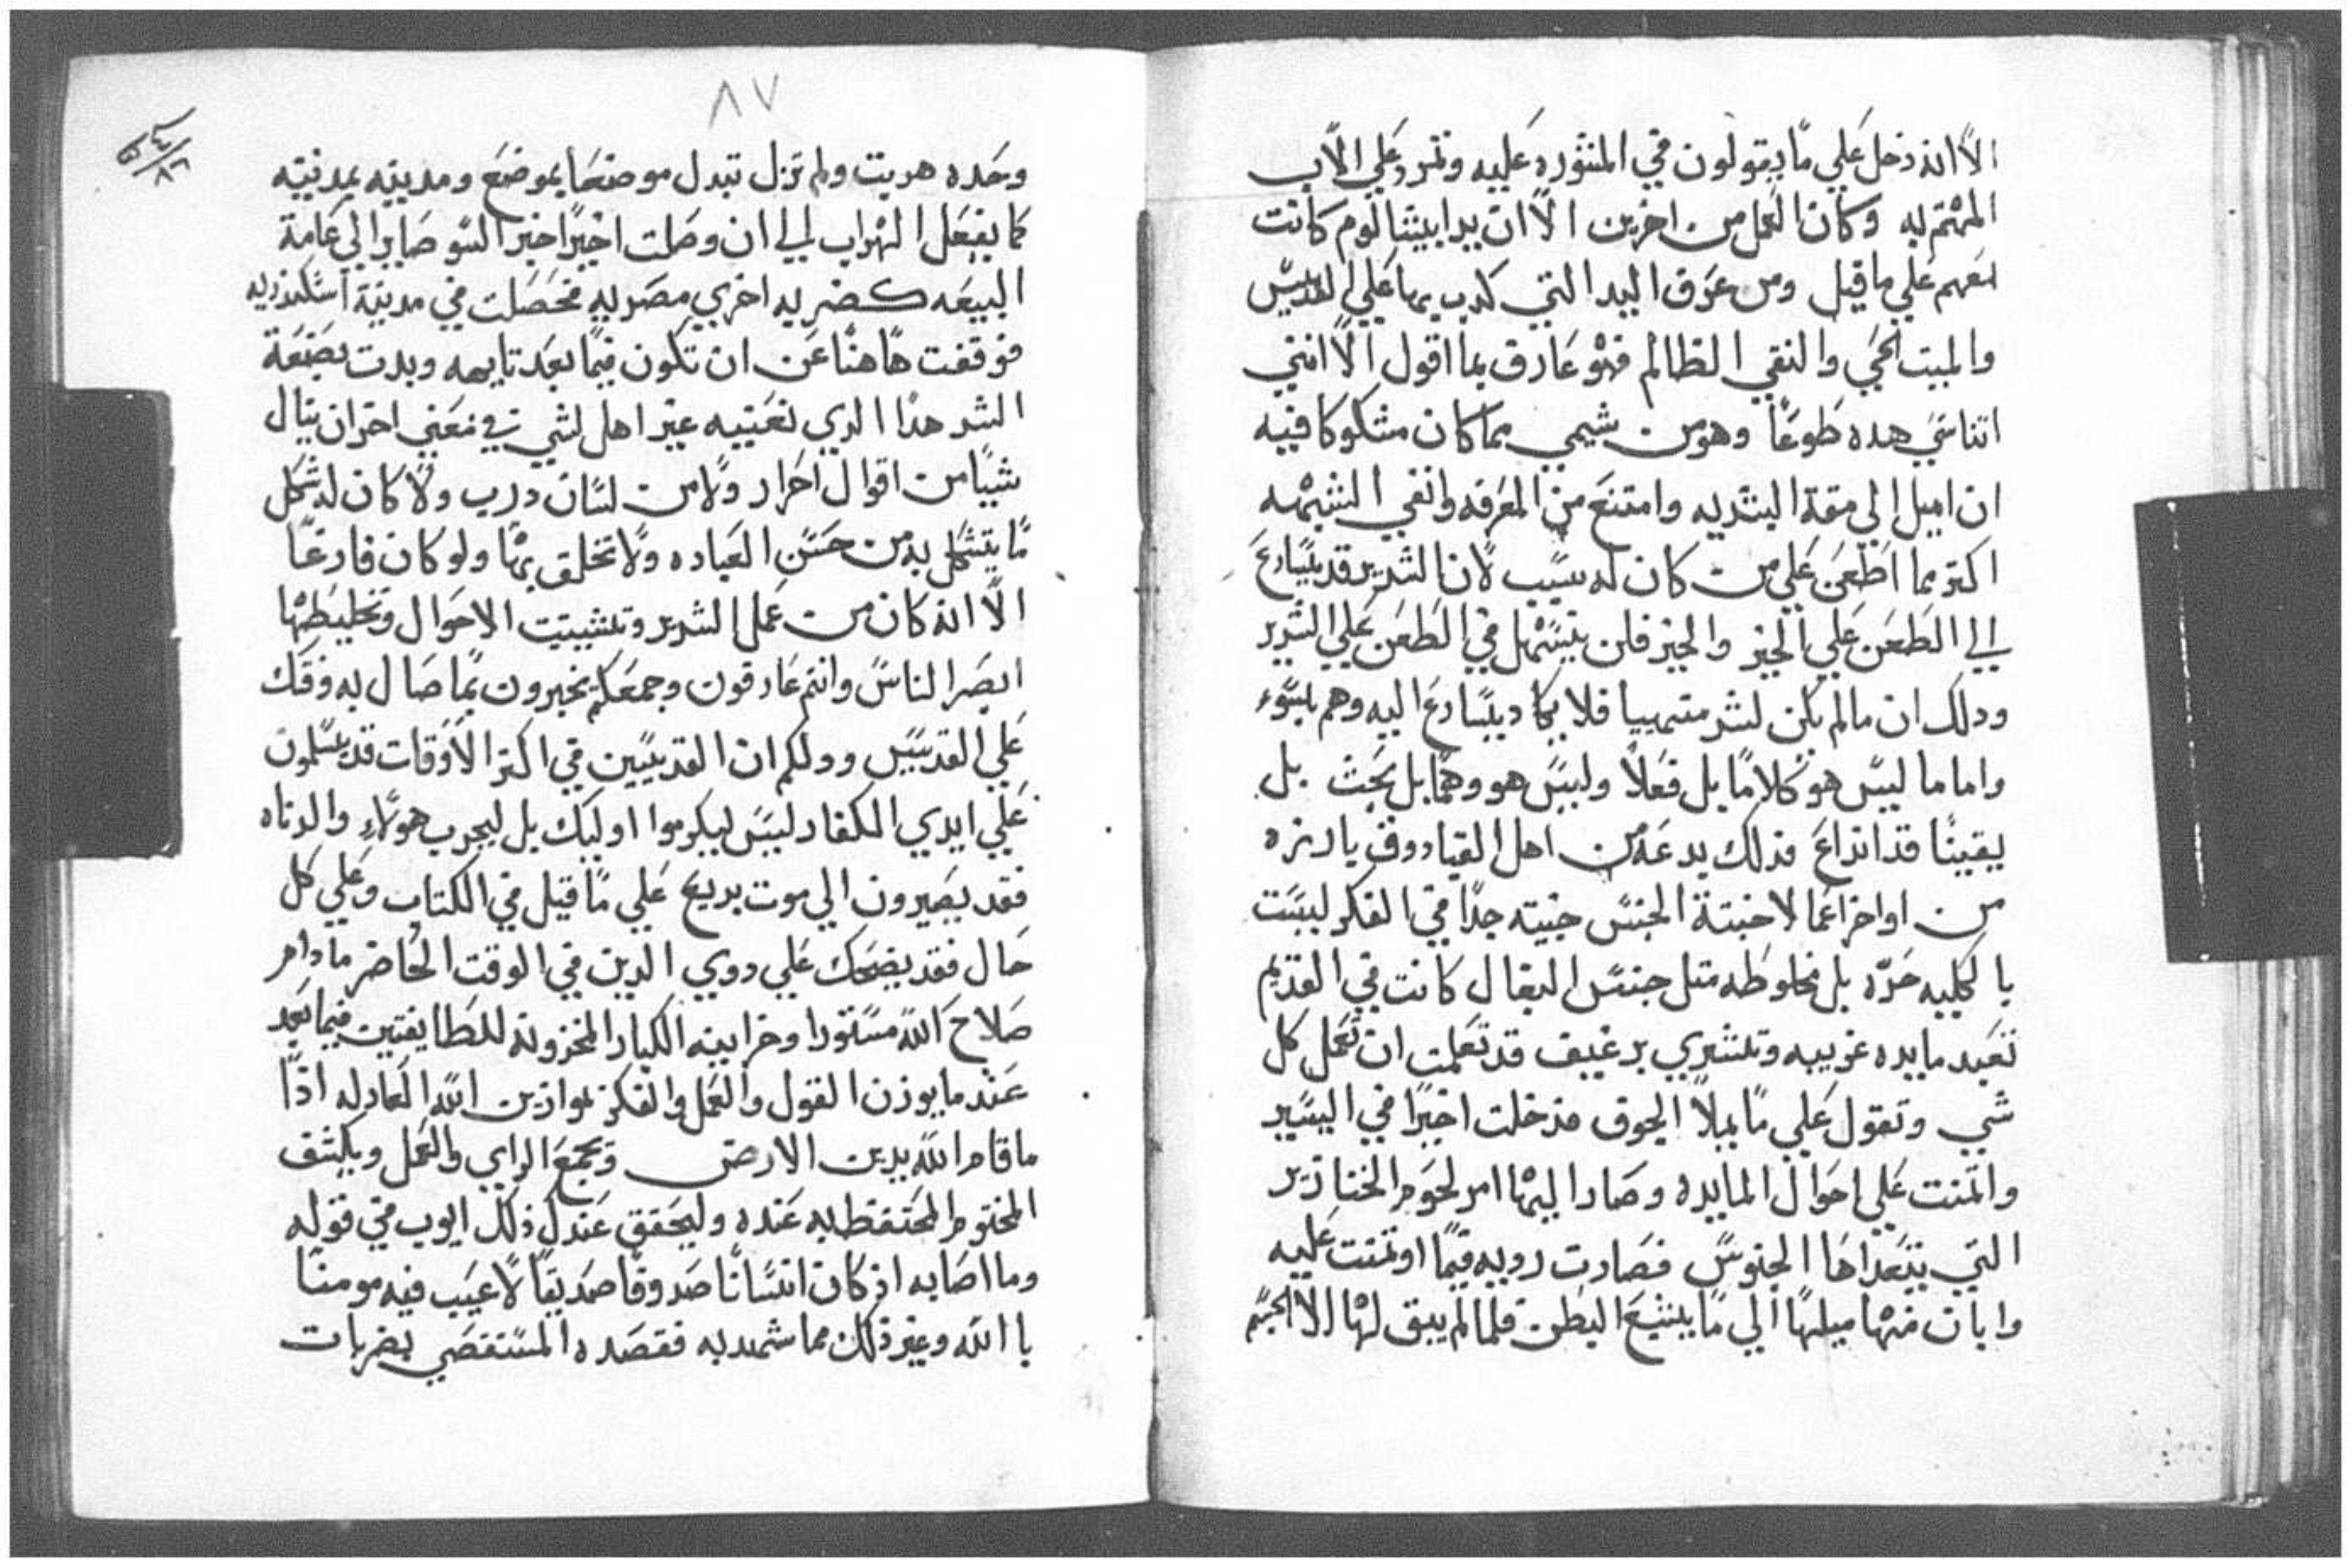 الا انه دخل علي ما يقولون في المشوره عليه وتمرد علي الاب
المهتم به وكان العمل من اخرين الا ان يدا بيشا لوم كانت
معهم علي ما قيل ومن عرف اليد التي كدب بها علي القديس
والميت الحي والنقي الظالم فهو عارف بما اقول الا انني
اتناسي هده طوعا وهو من شيمي مما كان مشكوكا فيه
ان اميل الي مقة البشريه وامتنع من المعرفه وانفي الشبهه
اكتر مما اطعن علي من كان له سبب لان الشرير قد يسارع
الي الطعن علي الخير والخير فلن يتسهل في الطعن علي الشرير
ودلك ان ما لم يكن لشر متهييا فلا يكاد يسارع اليه وهم بسوء
واما ما ليس هو كلاما بل فعلا وليس هو وهما بل بحث بل
يقينا قد انداع فدلك يدعه من اهل القيادوق يا رنره
من اواخر اعما لا خبتة الجنس خبيته جدا في الفكر ليست
بالكليه حره بل مخلوطه متل جنس البغال كانت في القديم
تعبد مايده غريبه وتشتري برغيف قد تعلمت ان تعمل كل
شي وتقول علي ما يملا الجوف فدخلت اخيرا في اليسير
واتمنت علي احوال المايده وصار اليها امر لحوم الخنازير
التي يتغداها الجنوس فصارت رويه فيما اوتمنت عليه
وابان منها ميلها الي ما يشبع البطن فلما لم يبق لها الا الجسم
٨٧
وحده هربت ولم تزل تبدل موضعا بموضع ومدينه بمدينه
كما يفعل الهراب الي ان وصلت اخيرا خير السو صايرا الي عامة
البيعه كضربه اخري مصريه فحصلت في مدينة اسكندريه
فوقفت هاهنا عن ان تكون فيما بعد تايهه وبدت بصنعة
الشر هدا الدي نعنيه غير اهل لشي في معني اخر ان ينال
شيا من اقوال احرار ولا من لسان درب ولا كان له شكل
ما يتشكل به من حسن العباده ولا تخلق بها ولو كان فارغا
الا انه كان من عمل الشرير وتشتيت الاحوال وتخليطها
ابصر الناس وانتم عارفون وجمعكم يخبرون بما صال به وفتك
علي القديس ودلكم ان القديسين في اكتر الاوقات قد يسلمون
علي ايدي الكفار ليس ليكرموا اوليك بل ليجرب هولاء والدناه
فقد يصيرون الي موت بريح علي ما قيل في الكتاب وعلي كل
حال فقد يضحك علي دوي الدين في الوقت الحاضر ما دام
صلاح الله مستورا وخزاينه الكبار المخزونه للطايفتين فيما بعد
عند ما يوزن القول والعمل والفكر بموازين الله العادله اذا
ما قام الله يدين الارض وتجمع الراي والعمل ويكشف
المختوم المحتفظ به عنده وليحقق عندك ذلك ايوب في قوله
وما اصابه اذ كان انسانا صدوقا صديقا لا عيب فيه مومنا
بالله وغير ذلك مما شهد به فقصده المستقصي بضربات